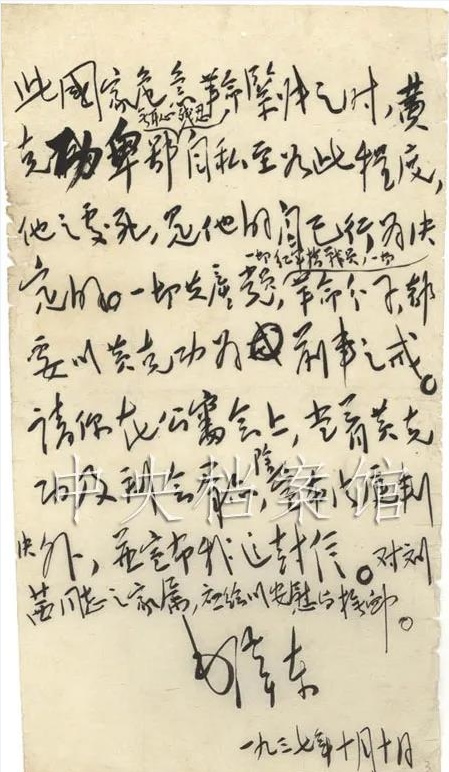 此國家危急革命緊张之时，黄
无恥残忍
克功卑鄙自私至如此程度，
他之處死，是他的自己行为决
一切红軍指戰員，一切
定的。一切共產党員，革命分子，都
要以黄克功为前車之戒。
请你在公審会上，当着黄克
除
功及到会群众，宣布法庭判
决外，並宣布我这封信。对刘
茜同志之家属，应给以安慰与抚卹。
毛泽东
一九三七年十月十日
中央档案馆